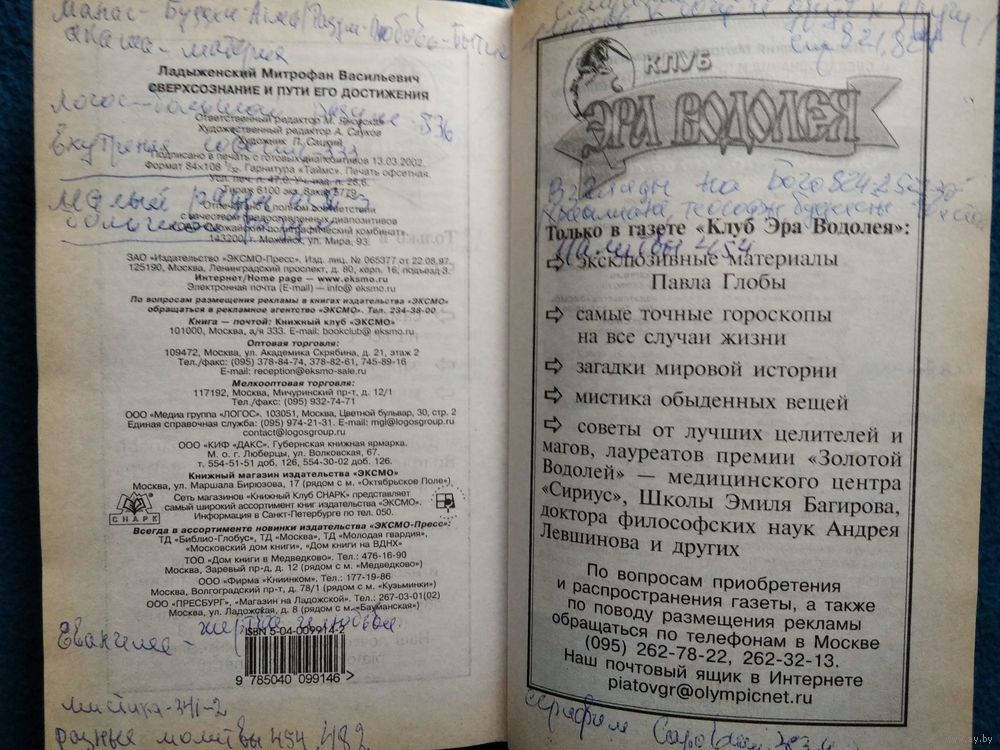 Манас - Буддхи - Атма / Разум - Любовь - Бытие
акаша - материя
Ладыженский Митрофан Васильевич
СВЕРХСОЗНАНИЕ И ПУТИ ЕГО ДОСТИЖЕНИЯ
Ответственный редактор М. Яновская
Логос - большой разум - 536
Художественный редактор А. Сауков
Художник Л. Сацкий
Внутренняя
Подписано в печать с готовых диапозитивов 13.03.2002.
Формат 84×108 1/32. Гарнитура «Таймс». Печать офсетная.
Усл. печ. л. 47,0. Уч.-изд. л. 28,6.
Тираж 6100 экз. Заказ 5779.
малый разум
Отпечатано в полном соответствии
с качеством предоставленных диапозитивов
большой
в «Можайский полиграфический комбинат»
143200, г. Можайск, ул. Мира, 93.
ЗАО «Издательство «ЭКСМО-Пресс». Изд. лиц. № 065377 от 22.08.97.
125190, Москва, Ленинградский проспект, д. 80, корп. 16, подъезд 3.
Интернет/Home page — www.eksmo.ru
Электронная почта (E-mail) — info@ eksmo.ru
По вопросам размещения рекламы в книгах издательства «ЭКСМО»
обращаться в рекламное агентство «ЭКСМО». Тел. 234-38-00
Книга — почтой: Книжный клуб «ЭКСМО»
101000, Москва, а/я 333. E-mail: bookclub@ eksmo.ru
Оптовая торговля:
109472, Москва, ул. Академика Скрябина, д. 21, этаж 2
Тел./факс: (095) 378-84-74, 378-82-61, 745-89-16
E-mail: reception@eksmo-sale.ru
Мелкооптовая торговля:
117192, Москва, Мичуринский пр-т, д. 12/1
Тел./факс: (095) 932-74-71
ООО «Медиа группа «ЛОГОС». 103051, Москва, Цветной бульвар, 30, стр. 2
Единая справочная служба: (095) 974-21-31. E-mail: mgl@logosgroup.ru
contact@logosgroup.ru
ООО «КИФ «ДАКС». Губернская книжная ярмарка.
М. о. г. Люберцы, ул. Волковская, 67.
т. 554-51-51 доб. 126, 554-30-02 доб. 126.
Книжный магазин издательства «ЭКСМО»
Москва, ул. Маршала Бирюзова, 17 (рядом с м. «Октябрьское Поле»)
СНАРК
Сеть магазинов «Книжный Клуб СНАРК» представляет
самый широкий ассортимент книг издательства «ЭКСМО».
Информация в Санкт-Петербурге по тел. 050.
Всегда в ассортименте новинки издательства «ЭКСМО-Пресс»:
ТД «Библио-Глобус», ТД «Москва», ТД «Молодая гвардия»,
«Московский дом книги», «Дом книги на ВДНХ»
ТОО «Дом книги в Медведково». Тел.: 476-16-90
Москва, Заревый пр-д, д. 12 (рядом с м. «Медведково»)
ООО «Фирма «Книинком». Тел.: 177-19-86
Москва, Волгоградский пр-т, д. 78/1 (рядом с м. «Кузьминки»)
ООО «ПРЕСБУРГ», «Магазин на Ладожской». Тел.: 267-03-01(02)
Москва, ул. Ладожская, д. 8 (рядом с м. «Бауманская»)
Евангелие -
ISBN 5-04-009914-2
9 785040 099146 >
мистика - 341-2
разные молитвы 454, 482
стр 821, 824
КЛУБ
ЭРА ВОДОЛЕЯ
Взгляды на Бога
Только в газете «Клуб Эра Водолея»:
454
⇨ эксклюзивные материалы
Павла Глобы
⇨ самые точные гороскопы
на все случаи жизни
⇨ загадки мировой истории
⇨ мистика обыденных вещей
⇨ советы от лучших целителей и
магов, лауреатов премии «Золотой
Водолей» — медицинского центра
«Сириус», Школы Эмиля Багирова,
доктора философских наук Андрея
Левшинова и других
По вопросам приобретения
и распространения газеты, а также
по поводу размещения рекламы
обращаться по телефонам в Москве
(095) 262-78-22, 262-32-13.
Наш почтовый ящик в Интернете
piatovgr@olympicnet.ru
Серафим Саровский